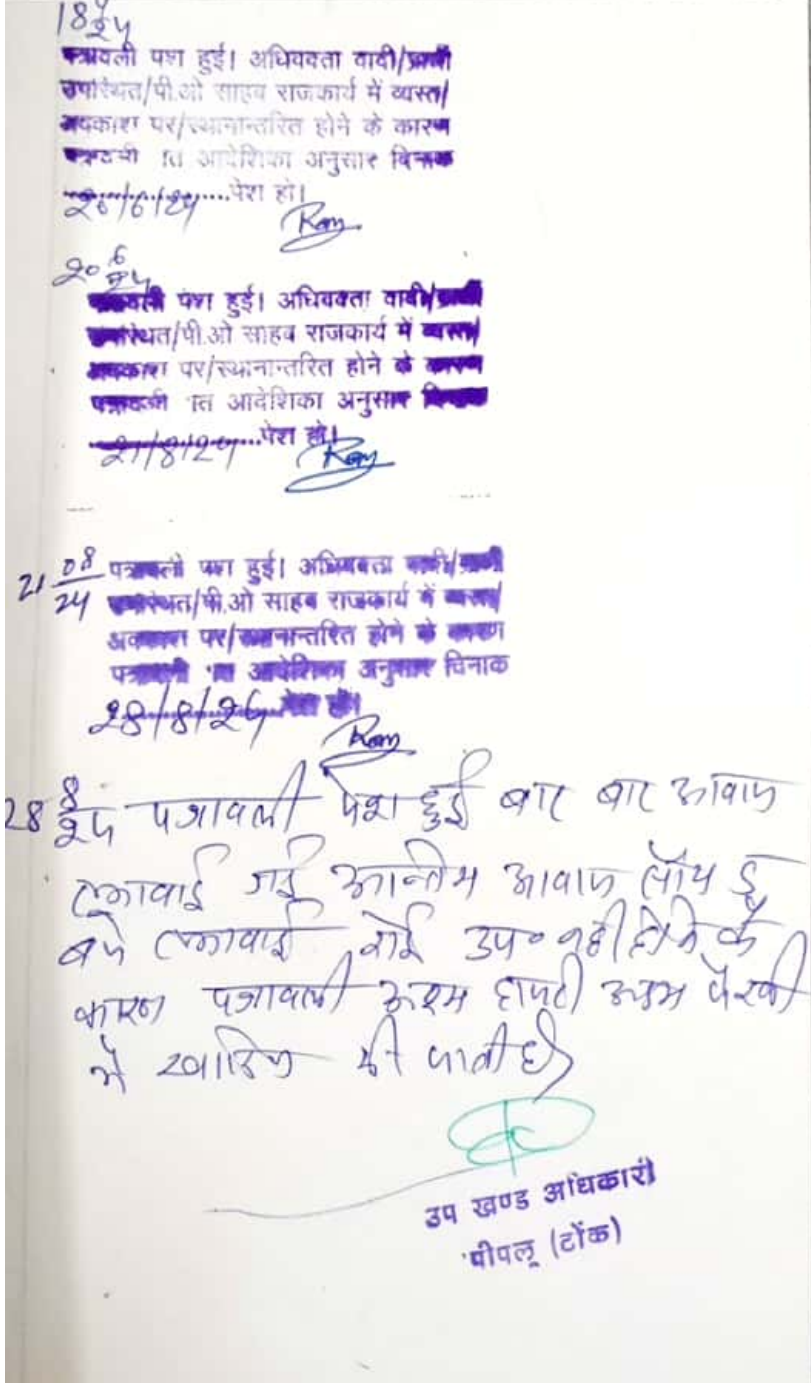 18
24
पत्रावली पेश हुई। अधिवक्ता वादी/प्रार्थी
उपस्थित/पी.ओ साहब राजकार्य में व्यस्त/
अवकाश पर/स्थानान्तरित होने के कारण
पत्रावली आदेशिका अनुसार दिनाक
20/6/24 पेश हो।
Ram
20 6
24
पत्रावली पेश हुई। अधिवक्ता वादी/प्रार्थी
उपस्थित/पी.ओ साहब राजकार्य में व्यस्त/
अवकाश पर/स्थानान्तरित होने के कारण
पत्रावली आदेशिका अनुसार दिनाक
21/8/24 पेश हो।
Ram
21 08
24
पत्रावली पेश हुई। अधिवक्ता वादी/प्रार्थी
उपस्थित/पी.ओ साहब राजकार्य में व्यस्त/
अवकाश पर/स्थानान्तरित होने के कारण
पत्रावली आदेशिका अनुसार दिनाक
28/8/24 पेश हो।
Ram
28 8
24 पत्रावली पेश हुई बार बार आवाज
लगवाई गई अन्तिम आवाज
बजे लगवाई कोई उप० नही होने के
कारण पत्रावली अदम हाजरी अदम पैरवी
मे खारिज की जाती है
उप खण्ड अधिकारी
पीपलू (टोंक)